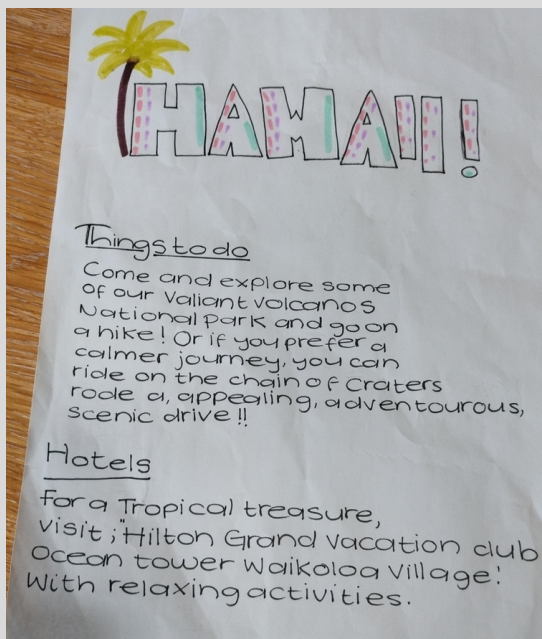 HAWAII!
Things to do
Come and explore some
of our Valiant Volcanos
National park and go on
a hike! Or if you prefer a
calmer journey, you can
ride on the chain of Craters
rode a, appealing, adventourous,
scenic drive!!
Hotels
For a Tropical treasure,
visit ;"Hilton Grand Vacation club
Ocean tower Waikoloa Village!
With relaxing activities.